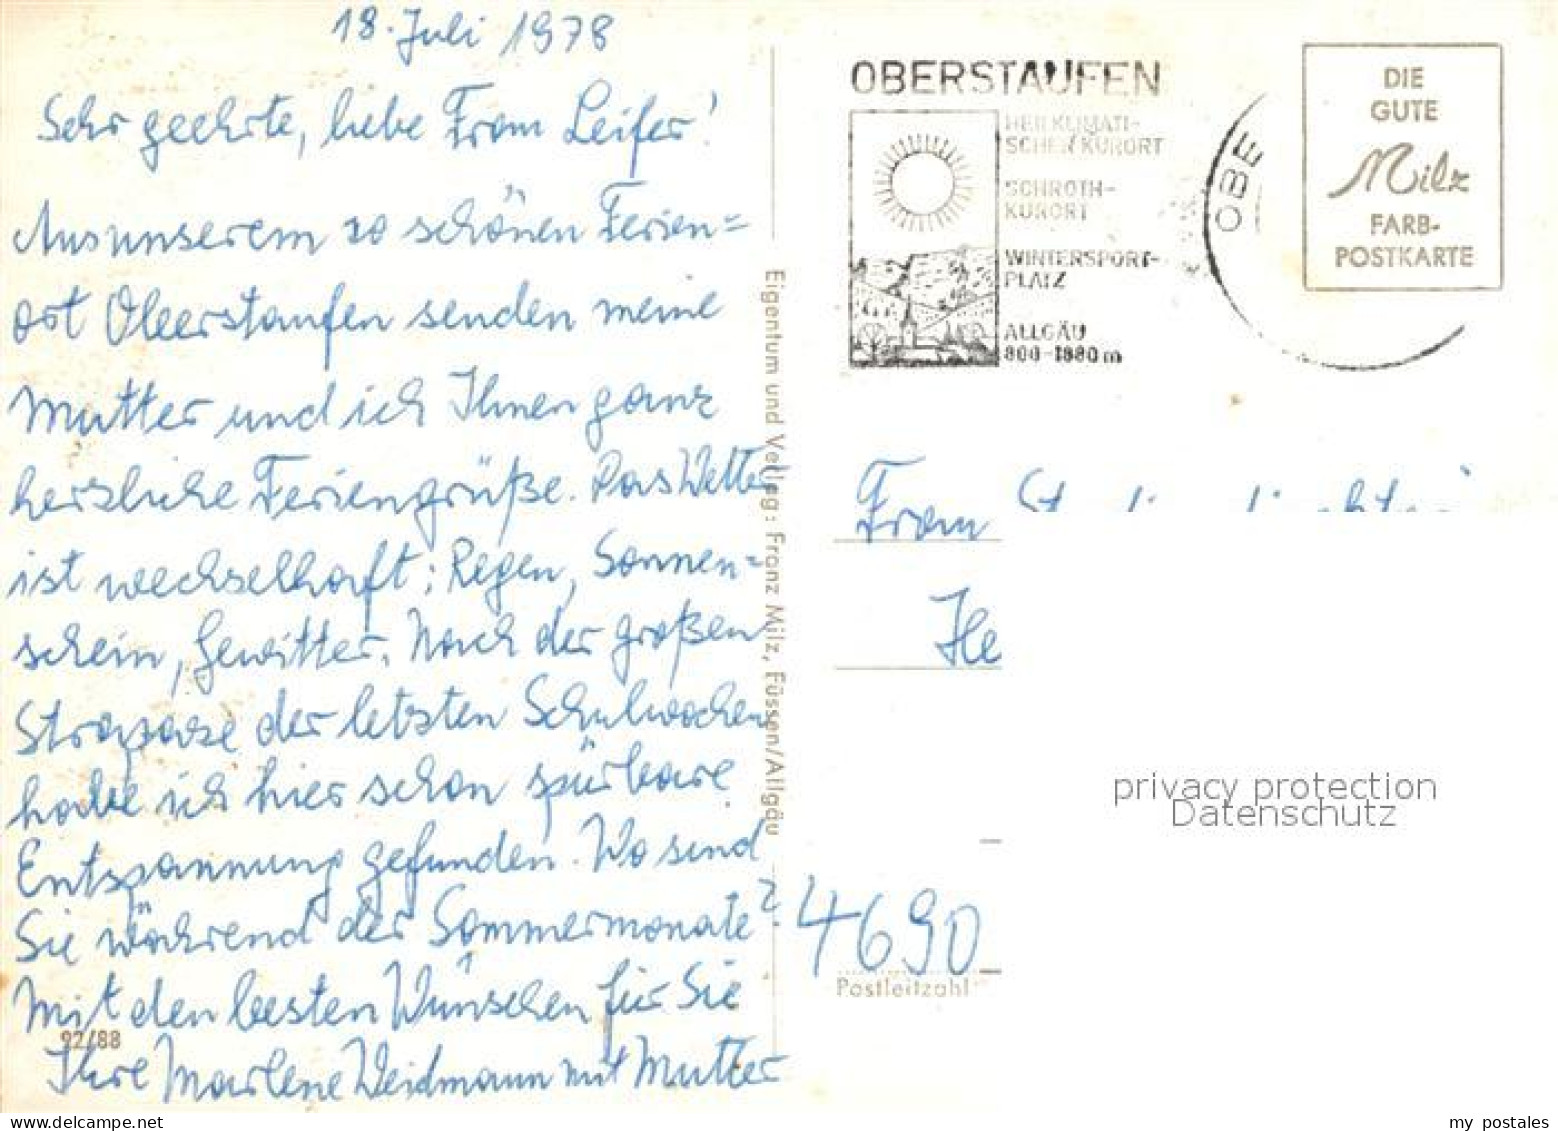 18. Juli 1978
Sehr geehrte, liebe Frau Leifer!
Aus unserem so schönen Ferien=
ort Oberstaufen senden meine
Mutter und ich Ihnen ganz
herzliche Feriengrüße. Das Wetter
ist wechselhaft; Regen, Sonnen=
schein, Gewitter. Nach der großen
Strapaze der letzten Schulwochen
habe ich hier schon spürbare
Entspannung gefunden. Wo sind
Sie während der Sommermonate?
Mit den besten Wünschen für Sie
Ihre Marlene Weidmann mit Mutter
92/88
Eigentum und Verlag: Franz Milz, Füssen/Allgäu
OBERSTAUFEN
HEILKLIMATI-
SCHER KURORT
SCHROTH-
KURORT
WINTERSPORT-
PLATZ
ALLGÄU
800-1880 m
OBE
DIE
GUTE
Milz
FARB-
POSTKARTE
Frau
He
privacy protection
Datenschutz
4690
Postleitzahl
my postales